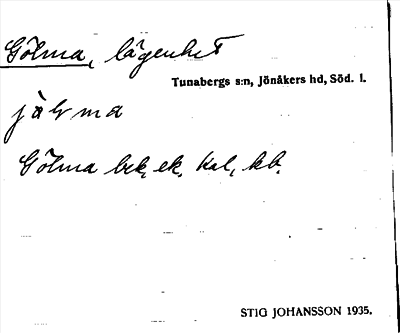 Gölma, lägenhet
Tunabergs s:n, Jönåkers hd, Söd. l.
Gölma bek, ek. kal, kb.
STIG JOHANSSON 1935.